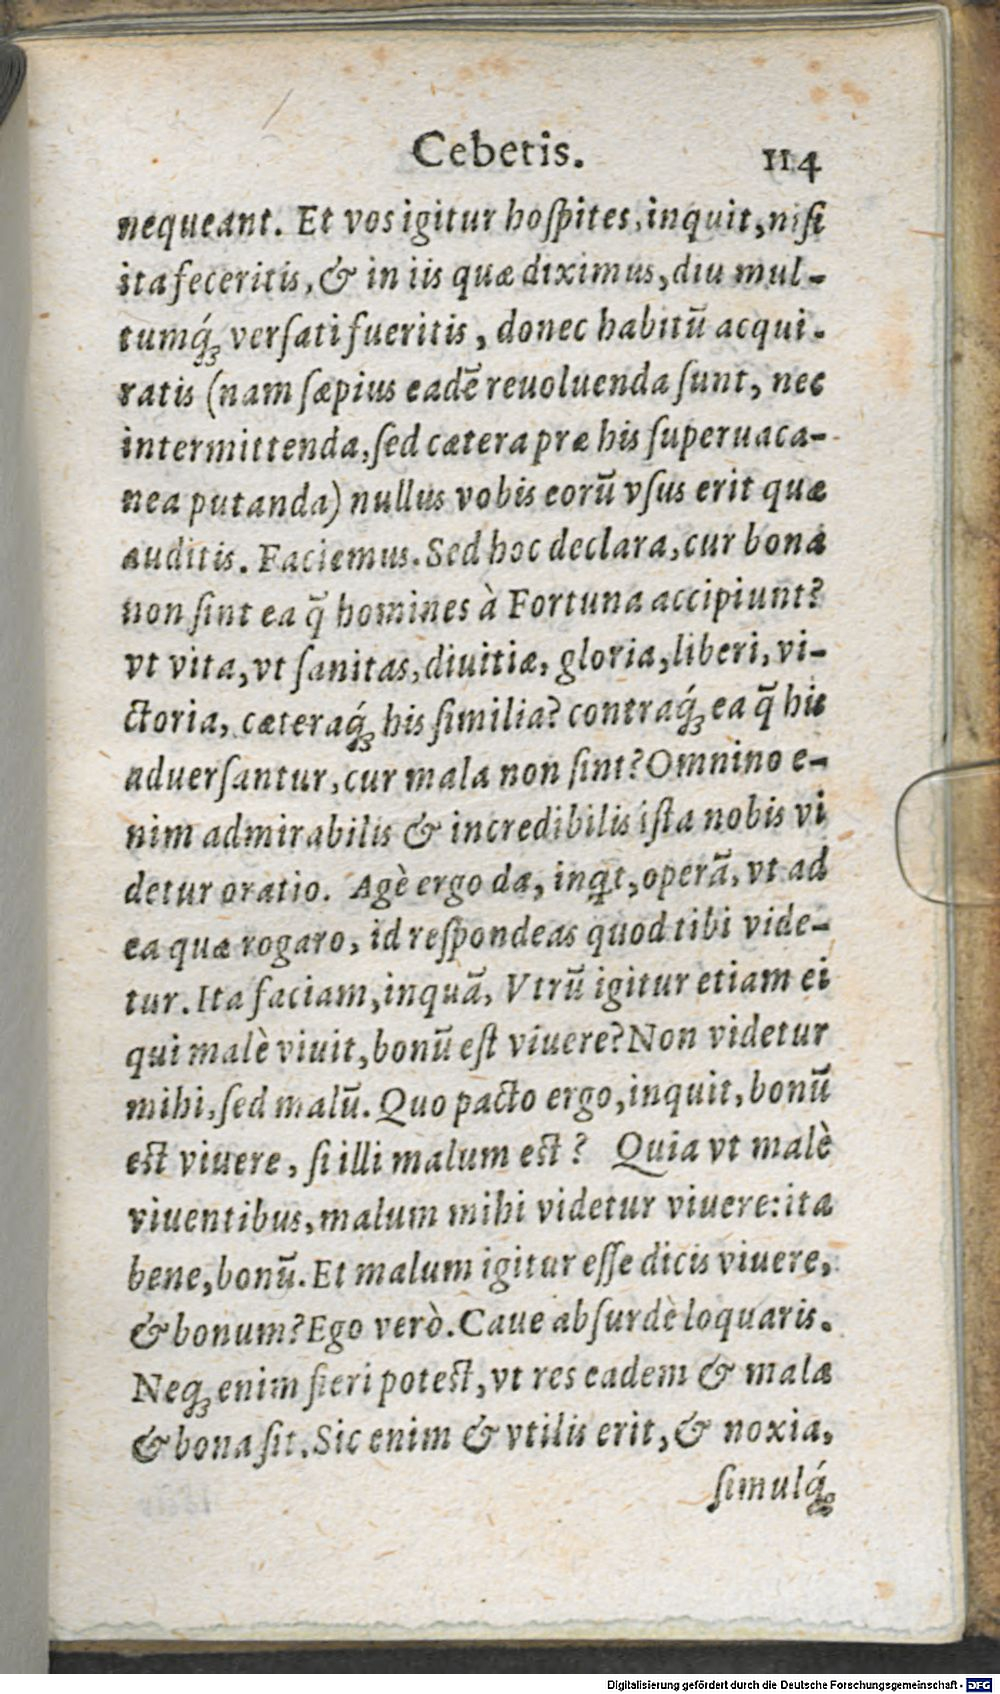 Cebetis. 114
nequeant. Et vos igitur hoſpites, inquit, niſi
ita feceritis, & in iis quæ diximus, diu mul-
tumq́ꝫ verſati fueritis, donec habitũ acqui-
ratis (nam ſæpius eadẽ reuoluenda ſunt, nec
intermittenda, ſed cætera præ his ſuperuaca-
nea putanda) nullus vobis eorũ vſus erit quæ
auditis. Faciemus. Sed hoc declara, cur bona
non ſint ea q̃ homines à Fortuna accipiunt?
vt vita, vt ſanitas, diuitiæ, gloria, liberi, vi-
ctoria, cæteraq́ꝫ his ſimilia? contraq́ꝫ ea q̃ his
aduerſantur, cur mala non ſint? Omnino e-
nim admirabilis & incredibilis iſta nobis vi
detur oratio. Agè ergo da, inqt, operã, vt ad
ea quæ rogaro, id reſpondeas quod tibi vide-
tur. Ita faciam, inquã, Vtrũ igitur etiam ei
qui malè viuit, bonũ eſt viuere? Non videtur
mihi, ſed malũ. Quo pacto ergo, inquit, bonũ
eſt viuere, ſi illi malum eſt? Quia vt malè
viuentibus, malum mihi videtur viuere: ita
bene, bonũ. Et malum igitur eſſe dicis viuere,
& bonum? Ego verò. Caue abſurdè loquaris.
Neqꝫ enim fieri poteſt, vt res eadem & mala
& bona ſit. Sic enim & vtilis erit, & noxia,
ſimulq́ꝫ
Digitalisierung gefördert durch die Deutsche Forschungsgemeinschaft - DFG